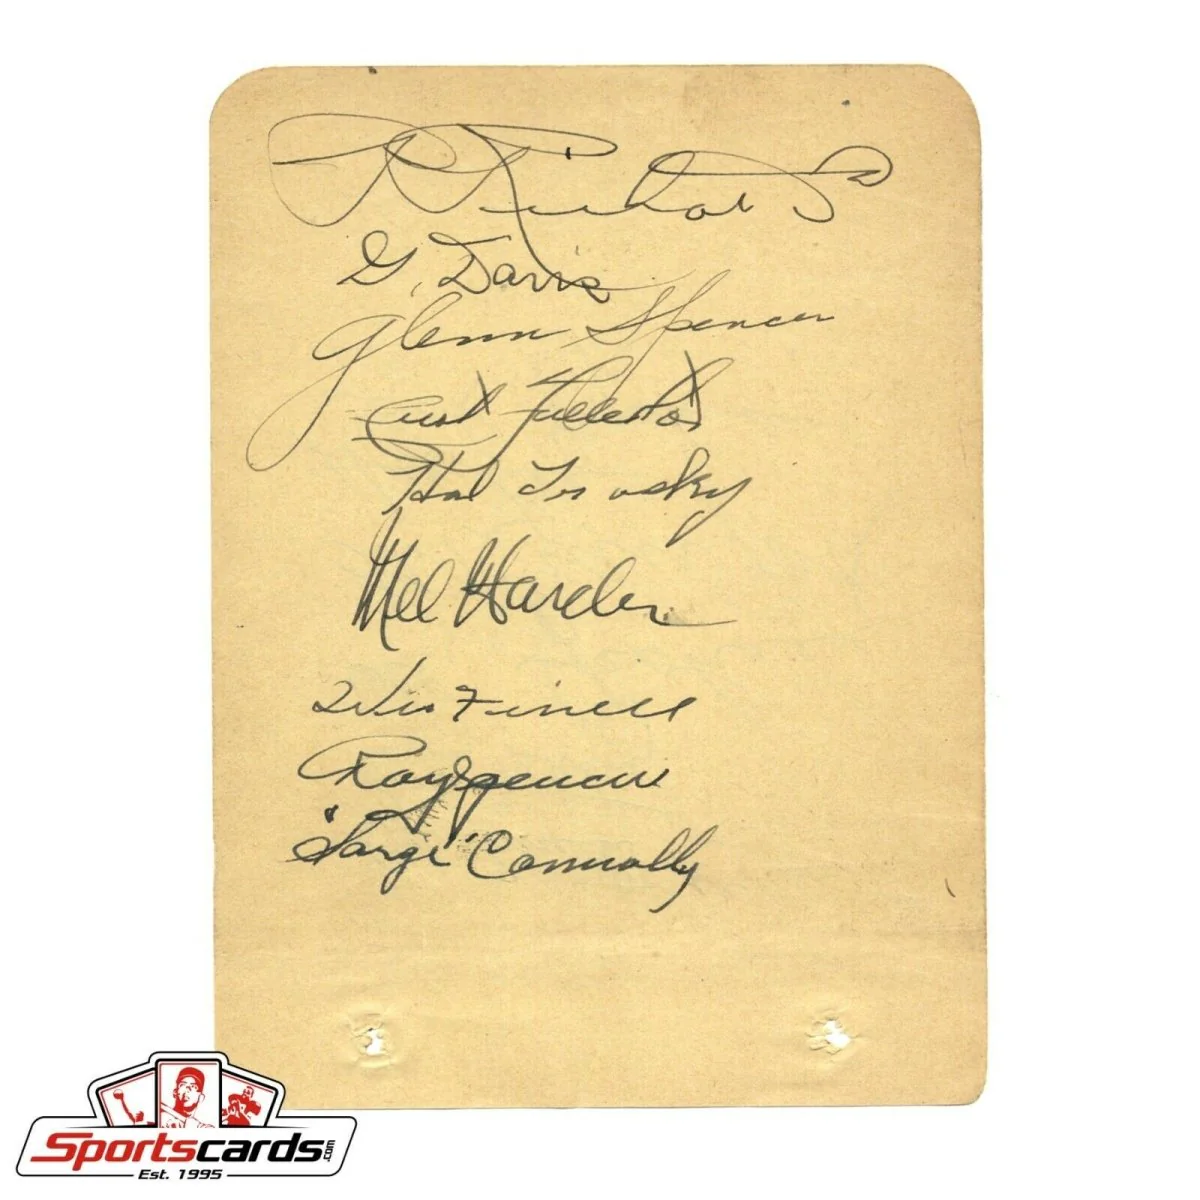 P. Richards
G. Davis
Glenn Spencer
Curt Fullerton
Hal Trosky
Mel Harder
Roy Spencer
"Sarge" Connally
Sportscards.com
Est. 1995